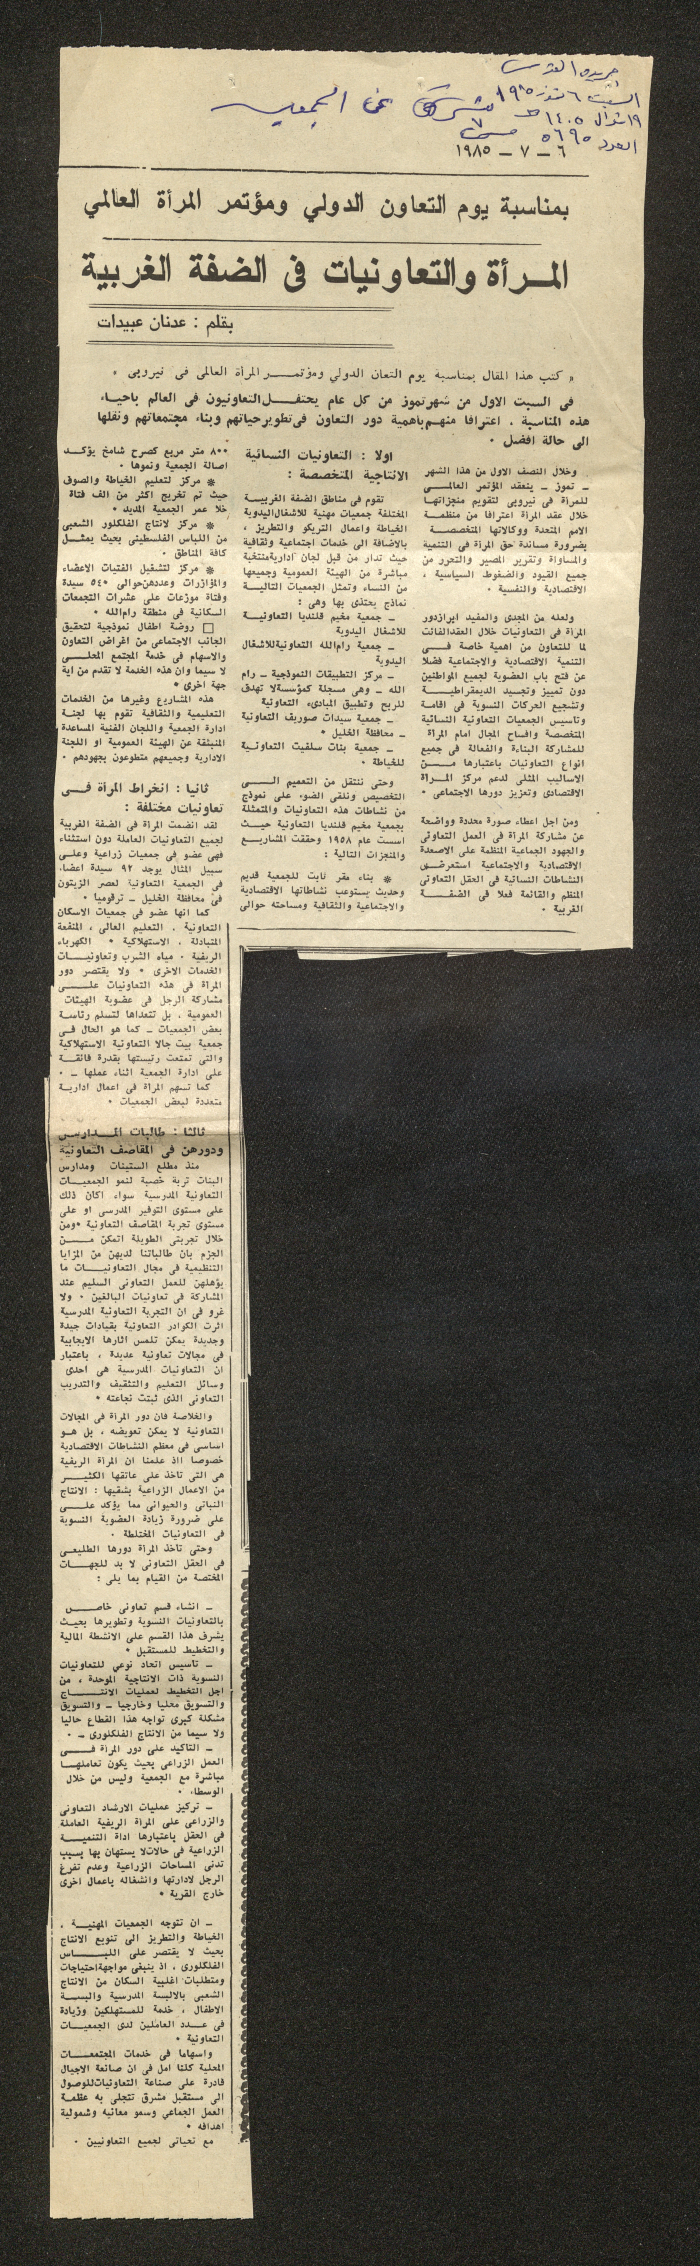 جريدة القدس
السبت ٦ تموز ١٩٨٥
١٩ شوال ١٤٠٥ هـ
العدد ٥٦٩٥
عن الجمعية
٦ - ٧ - ١٩٨٥
بمناسبة يوم التعاون الدولي ومؤتمر المرأة العالمي
المرأة والتعاونيات في الضفة الغربية
بقلم : عدنان عبيدات
« كتب هذا المقال بمناسبة يوم التعان الدولي ومؤتمر المرأة العالمى فى نيروبى »
فى السبت الاول من شهر تموز من كل عام يحتفل التعاونيون فى العالم باحياء
هذه المناسبة ، اعترافا منهم باهمية دور التعاون فى تطوير حياتهم وبناء مجتمعاتهم ونقلها
الى حالة افضل .
وخلال النصف الاول من هذا الشهر
ـ تموز ـ ينعقد المؤتمر العالمى
للمرأة فى نيروبى لتقويم منجزاتها
خلال عقد المرأة اعترافا من منظمة
الامم المتحدة ووكالاتها المتخصصة
بضرورة مساندة حق المرأة فى التنمية
والمساواة وتقرير المصير والتحرر من
جميع القيود والضغوط السياسية ،
الاقتصادية والنفسية .
ولعله من المجدى والمفيد ابراز دور
المرأة فى التعاونيات خلال العقد الفائت
لما للتعاون من اهمية خاصة فى
التنمية الاقتصادية والاجتماعية فضلا
عن فتح باب العضوية لجميع المواطنين
دون تمييز وتجسيد الديمقراطية
وتشجيع الحركات النسوية فى اقامة
وتاسيس الجمعيات التعاونية النسائية
المتخصصة وافساح المجال امام المرأة
للمشاركة البناءة والفعالة فى جميع
انواع التعاونيات باعتبارها من
الاساليب المثلى لدعم مركز المرأة
الاقتصادى وتعزيز دورها الاجتماعى .
ومن اجل اعطاء صورة محددة وواضحة
عن مشاركة المرأة فى العمل التعاونى
والجهود الجماعية المنظمة على الاصعدة
الاقتصادية والاجتماعية استعرض
النشاطات النسائية فى الحقل التعاونى
المنظم والقائمة فعلا فى الضفة
الغربية .
اولا : التعاونيات النسائية
الانتاجية المتخصصة :
تقوم فى مناطق الضفة الغربية
المختلفة جمعيات مهنية للاشغال اليدوية
الخياطة واعمال التريكو والتطريز ،
بالاضافة الى خدمات اجتماعية وثقافية
حيث تدار من قبل لجان ادارية منتخبة
مباشرة من الهيئة العمومية وجميعها
من النساء وتمثل الجمعيات التالية
نماذج يحتذى بها وهى :
ـ جمعية مخيم قلنديا التعاونية
للاشغال اليدوية
ـ جمعية رام الله التعاونية للاشغال
اليدوية
ـ مركز التطبيقات النموذجية ـ رام
الله ـ وهى مسجلة كمؤسسة لا تهدف
للربح وتطبق المبادىء التعاونية
ـ جمعية سيدات صوريف التعاونية
ـ محافظة الخليل .
ـ جمعية بنات سلفيت التعاونية
للخياطة .
وحتى ننتقل من التعميم الى
التخصيص ونلقى الضوء على نموذج
من نشاطات هذه التعاونيات والمتمثلة
بجمعية مخيم قلنديا التعاونية حيث
اسست عام ١٩٥٨ وحققت المشاريع
والمنجزات التالية :
* بناء مقر ثابت للجمعية قديم
وحديث يستوعب نشاطاتها الاقتصادية
والاجتماعية والثقافية ومساحته حوالى
٨٠٠ متر مربع كصرح شامخ يؤكد
اصالة الجمعية ونموها .
* مركز لتعليم الخياطة والصوف
حيث تم تخريج اكثر من الف فتاة
خلا عمر الجمعية المديد .
* مركز لانتاج الفلكلور الشعبى
من اللباس الفلسطينى بحيث يمثل
كافة المناطق .
* مركز لتشغيل الفتيات الاعضاء
والمؤازرات وعددهن حوالى ٥٤٠ سيدة
وفتاة موزعات على عشرات التجمعات
السكانية فى منطقة رام الله .
□ روضة اطفال نموذجية لتحقيق
الجانب الاجتماعى من اغراض التعاون
والاسهام فى خدمة المجتمع المحلى
لا سيما وان هذه الخدمة لا تقدم من اية
جهة اخرى .
هذه المشاريع وغيرها من الخدمات
التعليمية والثقافية تقوم بها لجنة
ادارة الجمعية واللجان الفنية المساعدة
المنبثقة عن الهيئة العمومية او اللجنة
الادارية وجميعهم متطوعون بجهودهم .
ثانيا : انخراط المرأة فى
تعاونيات مختلفة :
لقد انضمت المرأة فى الضفة الغربية
لجميع التعاونيات العاملة دون استثناء
فهى عضو فى جمعيات زراعية وعلى
سبيل المثال يوجد ٩٢ سيدة اعضاء
فى الجمعية التعاونية لعصر الزيتون
فى محافظة الخليل ـ ترقوميا .
كما انها عضو فى جمعيات الاسكان
التعاونية ، التعليم العالى ، المنفعة
المتبادلة ، الاستهلاكية . الكهرباء
الريفية . مياه الشرب وتعاونيات
الخدمات الاخرى . ولا يقتصر دور
المرأة فى هذه التعاونيات على
مشاركة الرجل فى عضوية الهيئات
العمومية ، بل تتعداها لتسلم رئاسة
بعض الجمعيات ـ كما هو الحال فى
جمعية بيت جالا التعاونية الاستهلاكية
والتى تمتعت رئيستها بقدرة فائقة
على ادارة الجمعية اثناء عملها ـ .
كما تسهم المرأة فى اعمال ادارية
متعددة لبعض الجمعيات .
ثالثا : طالبات المدارس
ودورهن فى المقاصف التعاونية
منذ مطلع الستينات ومدارس
البنات تربة خصبة لنمو الجمعيات
التعاونية المدرسية سواء اكان ذلك
على مستوى التوفير المدرسى او على
مستوى تجربة المقاصف التعاونية . ومن
خلال تجربتى الطويلة اتمكن من
الجزم بان طالباتنا لديهن من المزايا
التنظيمية فى مجال التعاونيات ما
يؤهلهن للعمل التعاونى السليم عند
المشاركة فى تعاونيات البالغين . ولا
غرو فى ان التجربة التعاونية المدرسية
اثرت الكوادر التعاونية بقيادات جيدة
وجديدة يمكن تلمس اثارها الايجابية
فى مجالات تعاونية عديدة ، باعتبار
ان التعاونيات المدرسية هى احدى
وسائل التعليم والتثقيف والتدريب
التعاونى الذى ثبتت نجاعته .
والخلاصة فان دور المرأة فى المجالات
التعاونية لا يمكن تعويضه ، بل هو
اساسى فى معظم النشاطات الاقتصادية
خصوصا اذا علمنا ان المرأة الريفية
هى التى تاخذ على عاتقها الكثير
من الاعمال الزراعية بشقيها : الانتاج
النباتى والحيوانى مما يؤكد على
على ضرورة زيادة العضوية النسوية
فى التعاونيات المختلطة .
وحتى تأخذ المرأة دورها الطليعى
فى الحقل التعاونى لا بد للجهات
المختصة من القيام بما يلى :
ـ انشاء قسم تعاونى خاص
بالتعاونيات النسوية وتطويرها بحيث
يشرف هذا القسم على الانشطة الحالية
والتخطيط للمستقبل .
ـ تاسيس اتحاد نوعي للتعاونيات
النسوية ذات الانتاجية الموحدة ، من
اجل التخطيط لعمليات الانتاج
والتسويق محليا وخارجيا ـ والتسويق
مشكلة كبرى تواجه هذا القطاع حاليا
ولا سيما من الانتاج الفلكلورى ـ .
ـ التاكيد على دور المرأة فى
العمل الزراعى بحيث يكون تعاملها
مباشرة مع الجمعية وليس من خلال
الوسطاء .
ـ تركيز عمليات الارشاد التعاونى
والزراعى على المرأة الريفية العاملة
فى الحقل باعتبارها اداة التنمية
الزراعية فى حالات لا يستهان بها بسبب
تدنى المساحات الزراعية وعدم تفرغ
الرجل لادارتها وانشغاله باعمال اخرى
خارج القرية .
ـ ان تتوجه الجمعيات المهنية ،
الخياطة والتطريز الى تنويع الانتاج
بحيث لا يقتصر على اللباس
الفلكلورى ، اذ ينبغى مواجهة احتياجات
ومتطلبات اغلبية السكان من الانتاج
الشعبى بالالبسة المدرسية والبسة
الاطفال ، خدمة للمستهلكين وزيادة
فى عدد العاملين لدى الجمعيات
التعاونية .
واسهاما فى خدمات المجتمعات
المحلية كلنا امل فى ان صانعة الاجيال
قادرة على صناعة التعاونيات للوصول
الى مستقبل مشرق تتجلى به عظمة
العمل الجماعي وسمو معانيه وشمولية
اهدافه .
مع تحياتى لجميع التعاونيين .